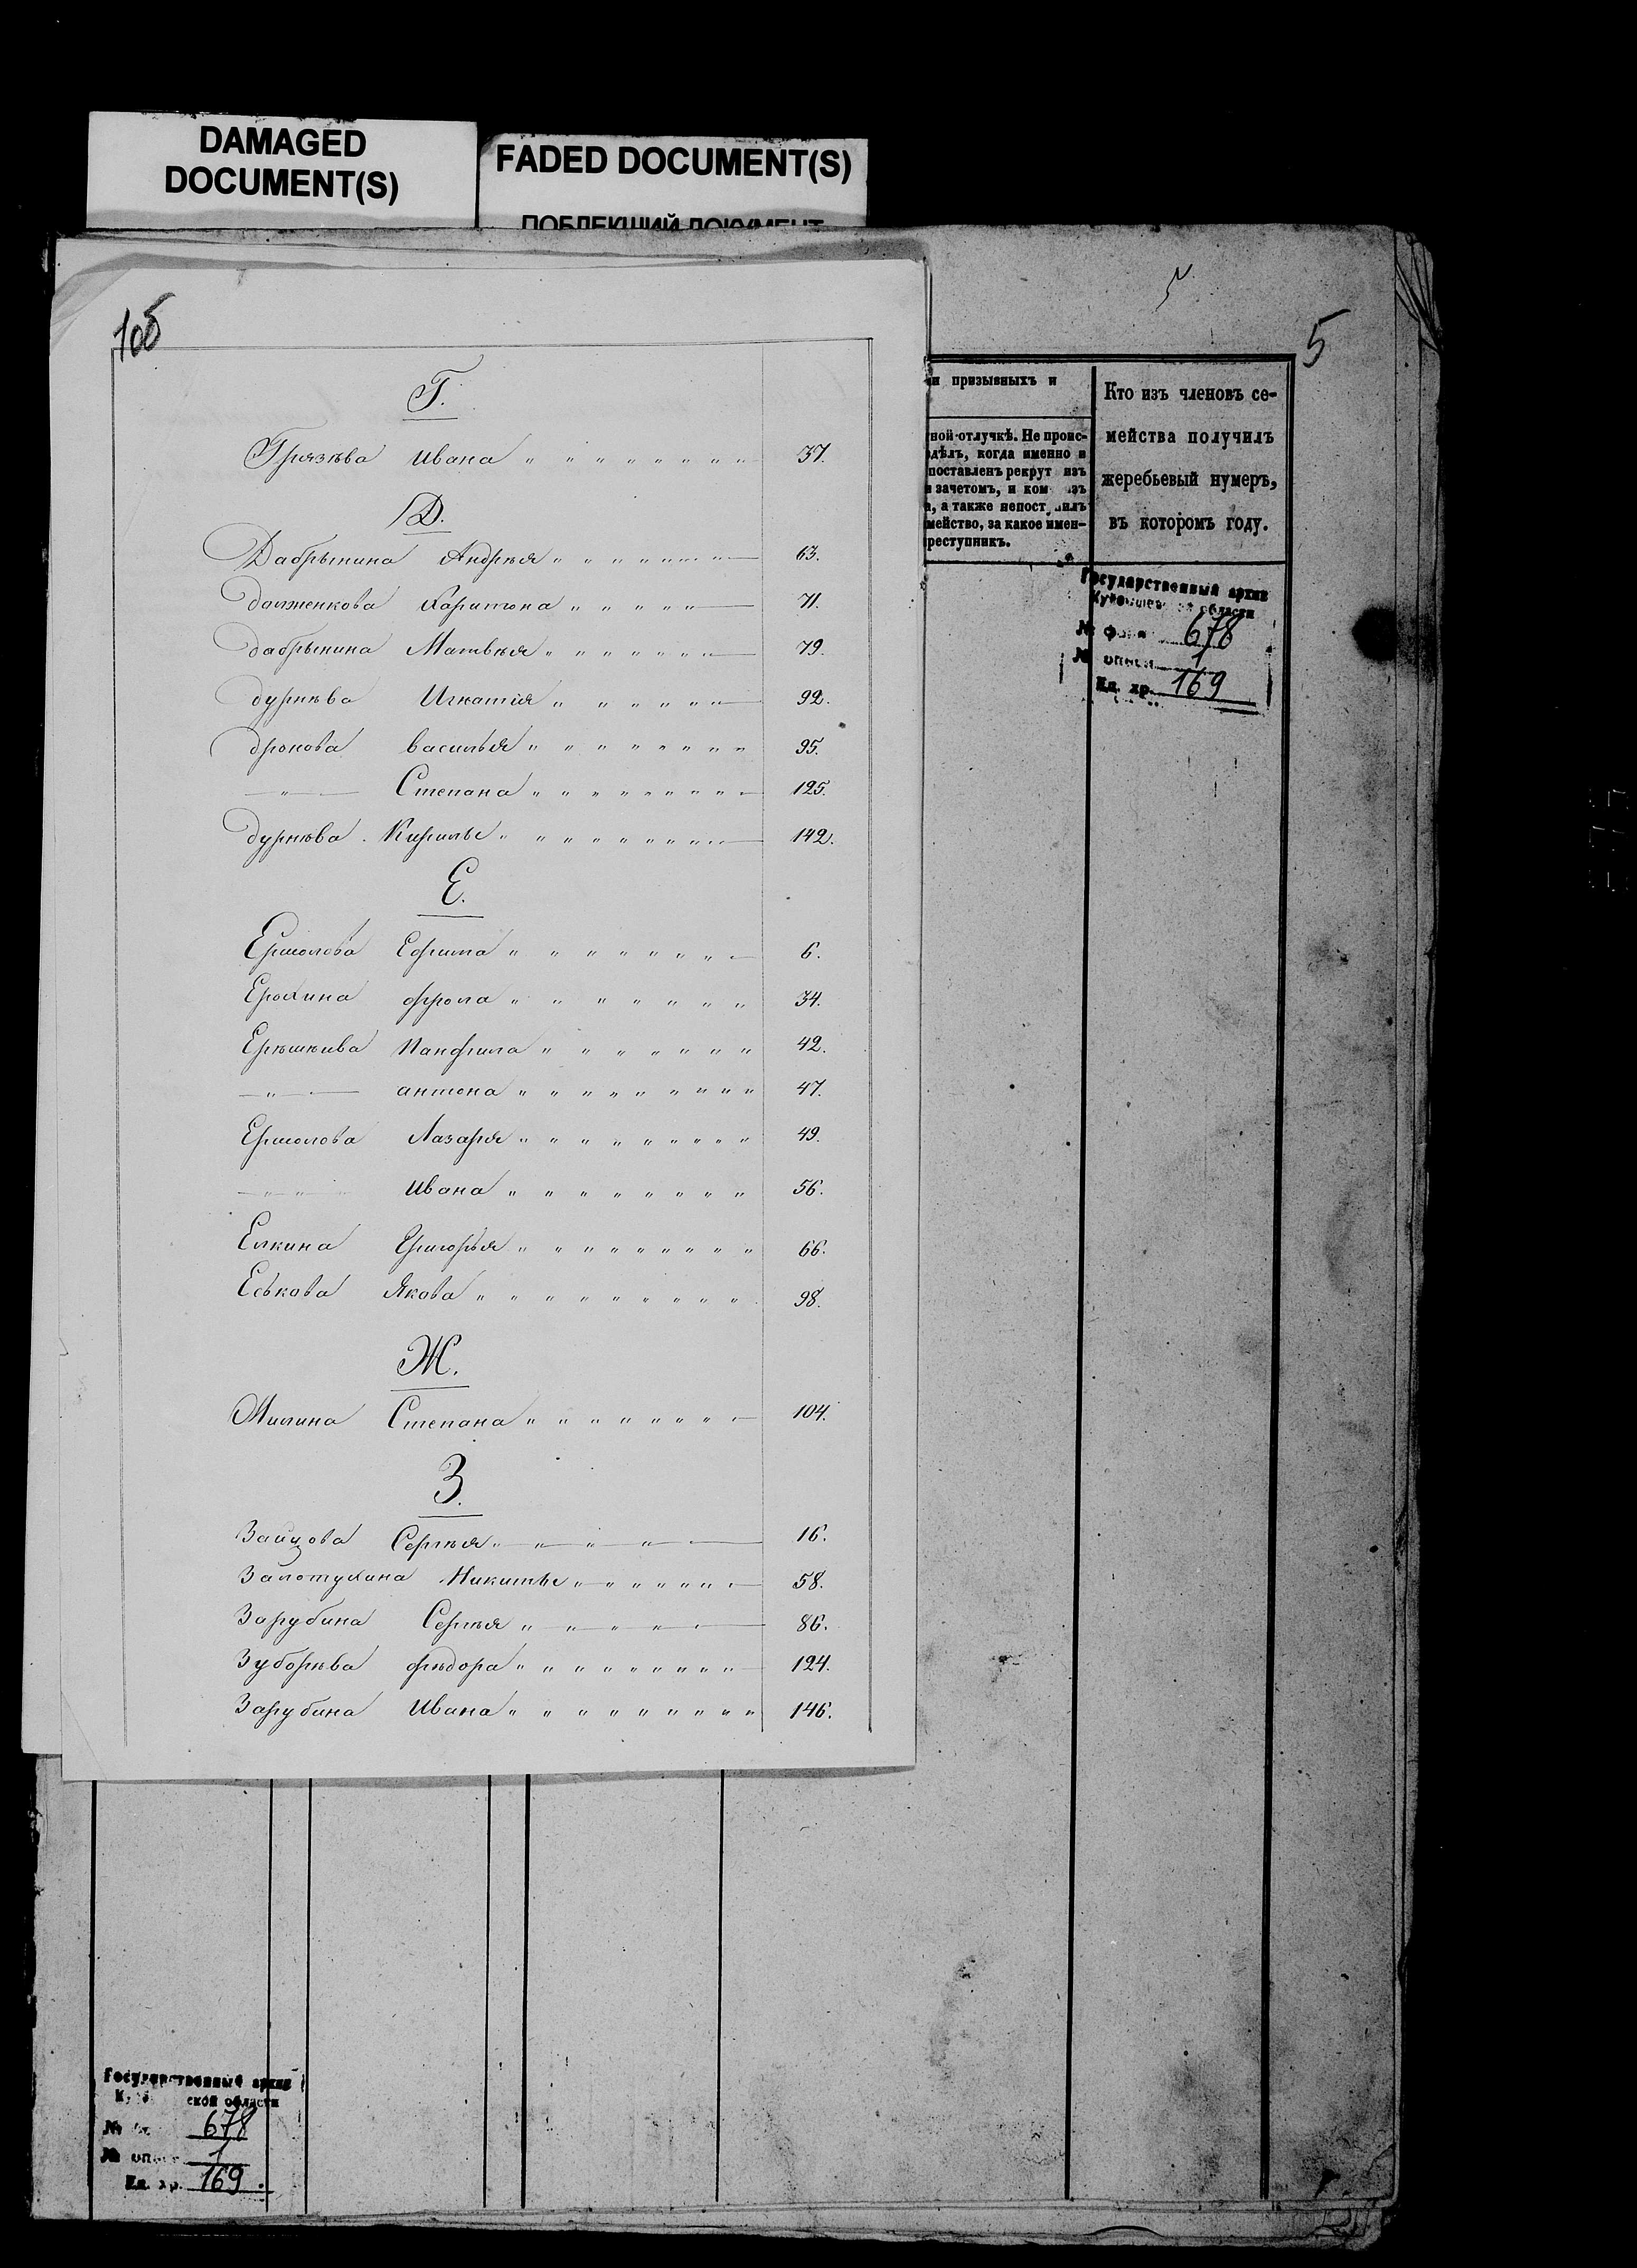 DAMAGED
DOCUMENT(S)
FADED DOCUMENT(S)
ПОБЛЕКШИЙ ДОКУМЕНТ
5
10б
Г.
Грязнѣва Ивана " " " " " " " " 37.
Д.
Дабрынина Андрѣя " " " " " " " 63.
Долженкова Харитона " " " " " 71.
Дабрынина Матвѣя " " " " " " " 79.
Дурнѣва Игнатія " " " " " " 92.
Дронова Василья " " " " " " " " 95.
— " — Степана " " " " " " " " 125.
Дурнѣва Кирилы " " " " " " " " 142.
Е.
Ермолова Ефима " " " " " " " " 6.
Ерохина Фрола " " " " " " " 34.
Панфила " " " " " " " " 42.
— " — Антона " " " " " " " " " 47.
Ермолова Лазаря " " " " " " " " " 49.
— " " — Ивана " " " " " " " " 56.
Елкина Григорья " " " " " " " " " 66.
Еськова Якова " " " " " " " " " " 98.
Ж.
Жилина Степана " " " " " " " " 104.
З.
Зайцова Сергѣя " " " " 16.
Залотухина Никиты " " " " " " " 58.
Зарубина Сергѣя " " " " " 86.
Зуборѣва Фѣдора " " " " " " " " " 124.
Зарубина Ивана " " " " " " " " " 146.
и призывныхъ и
ной отлучкѣ. Не проис-
дѣлъ, когда именно и
поставленъ рекрут изъ
и зачетомъ, и ком изъ
а, а также непост вилъ
мейство, за какое имен-
реступникъ.
Кто изъ членовъ се-
мейства получилъ
жеребьевый нумеръ,
въ которомъ году.
Государственный архив
области
№ фон 678
№ описи 1
Ед. хр. 169
Государственный архив
ской области
№ 678
№ опис 1
Ед. хр. 169